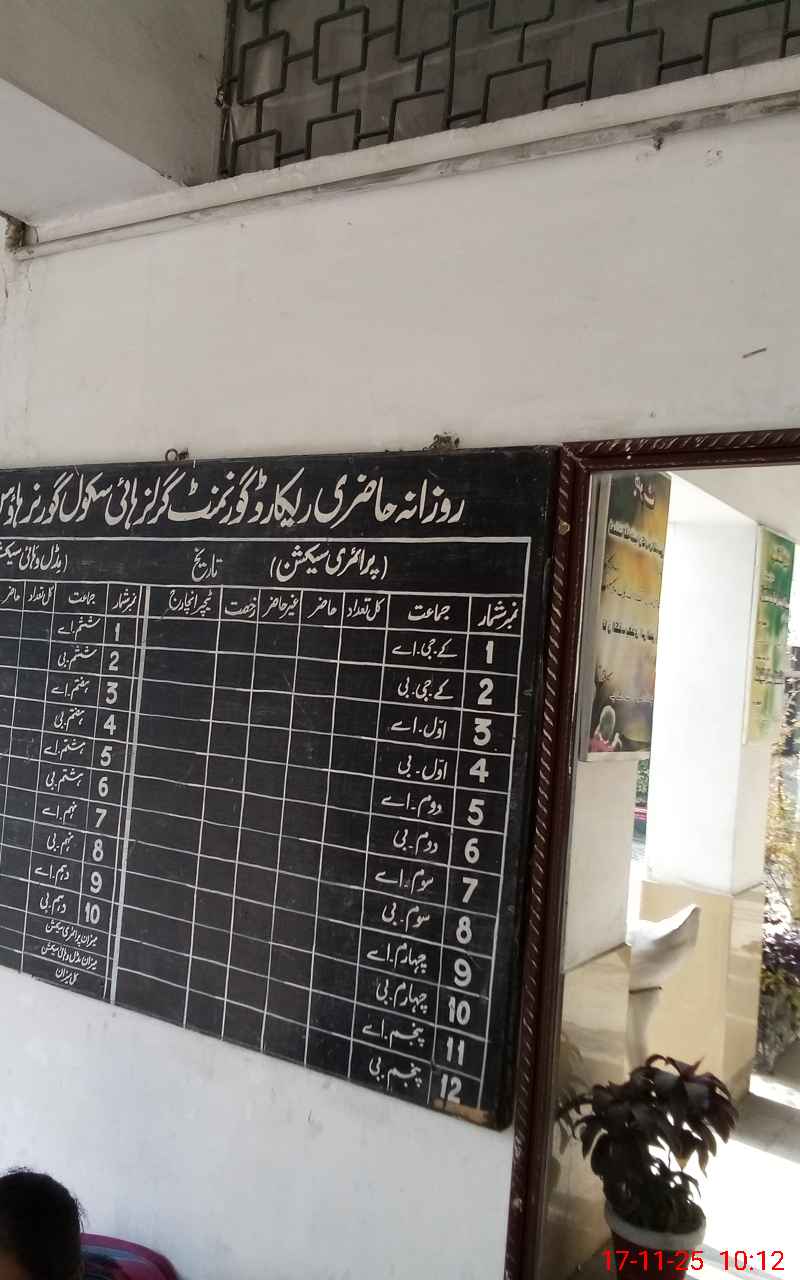 روزانہ حاضری ریکارڈ گورنمنٹ گرلز ہائی سکول گورنر ہاؤس
(پرائمری سیکشن) تاریخ (مڈل و ہائی سیکشن
نمبر شمار جماعت کل تعداد حاضر غیر حاضر رخصت ٹیچر انچارج نمبر شمار جماعت کل تعداد حاضر
1 کے جی۔اے 1 ششم۔اے
2 کے جی۔بی 2 ششم۔بی
3 اوّل۔اے 3 ہفتم۔اے
4 اوّل۔بی 4 ہفتم۔بی
5 دوم۔اے 5 ہشتم۔اے
6 دوم۔بی 6 ہشتم۔بی
7 سوم۔اے 7 نہم۔اے
8 سوم۔بی 8 نہم۔بی
9 چہارم۔اے 9 دہم۔اے
10 چہارم۔بی 10 دہم۔بی
11 پنجم۔اے میزان پرائمری سیکشن
12 پنجم۔بی میزان مڈل و ہائی سیکشن
کل میزان
17-11-25 10:12